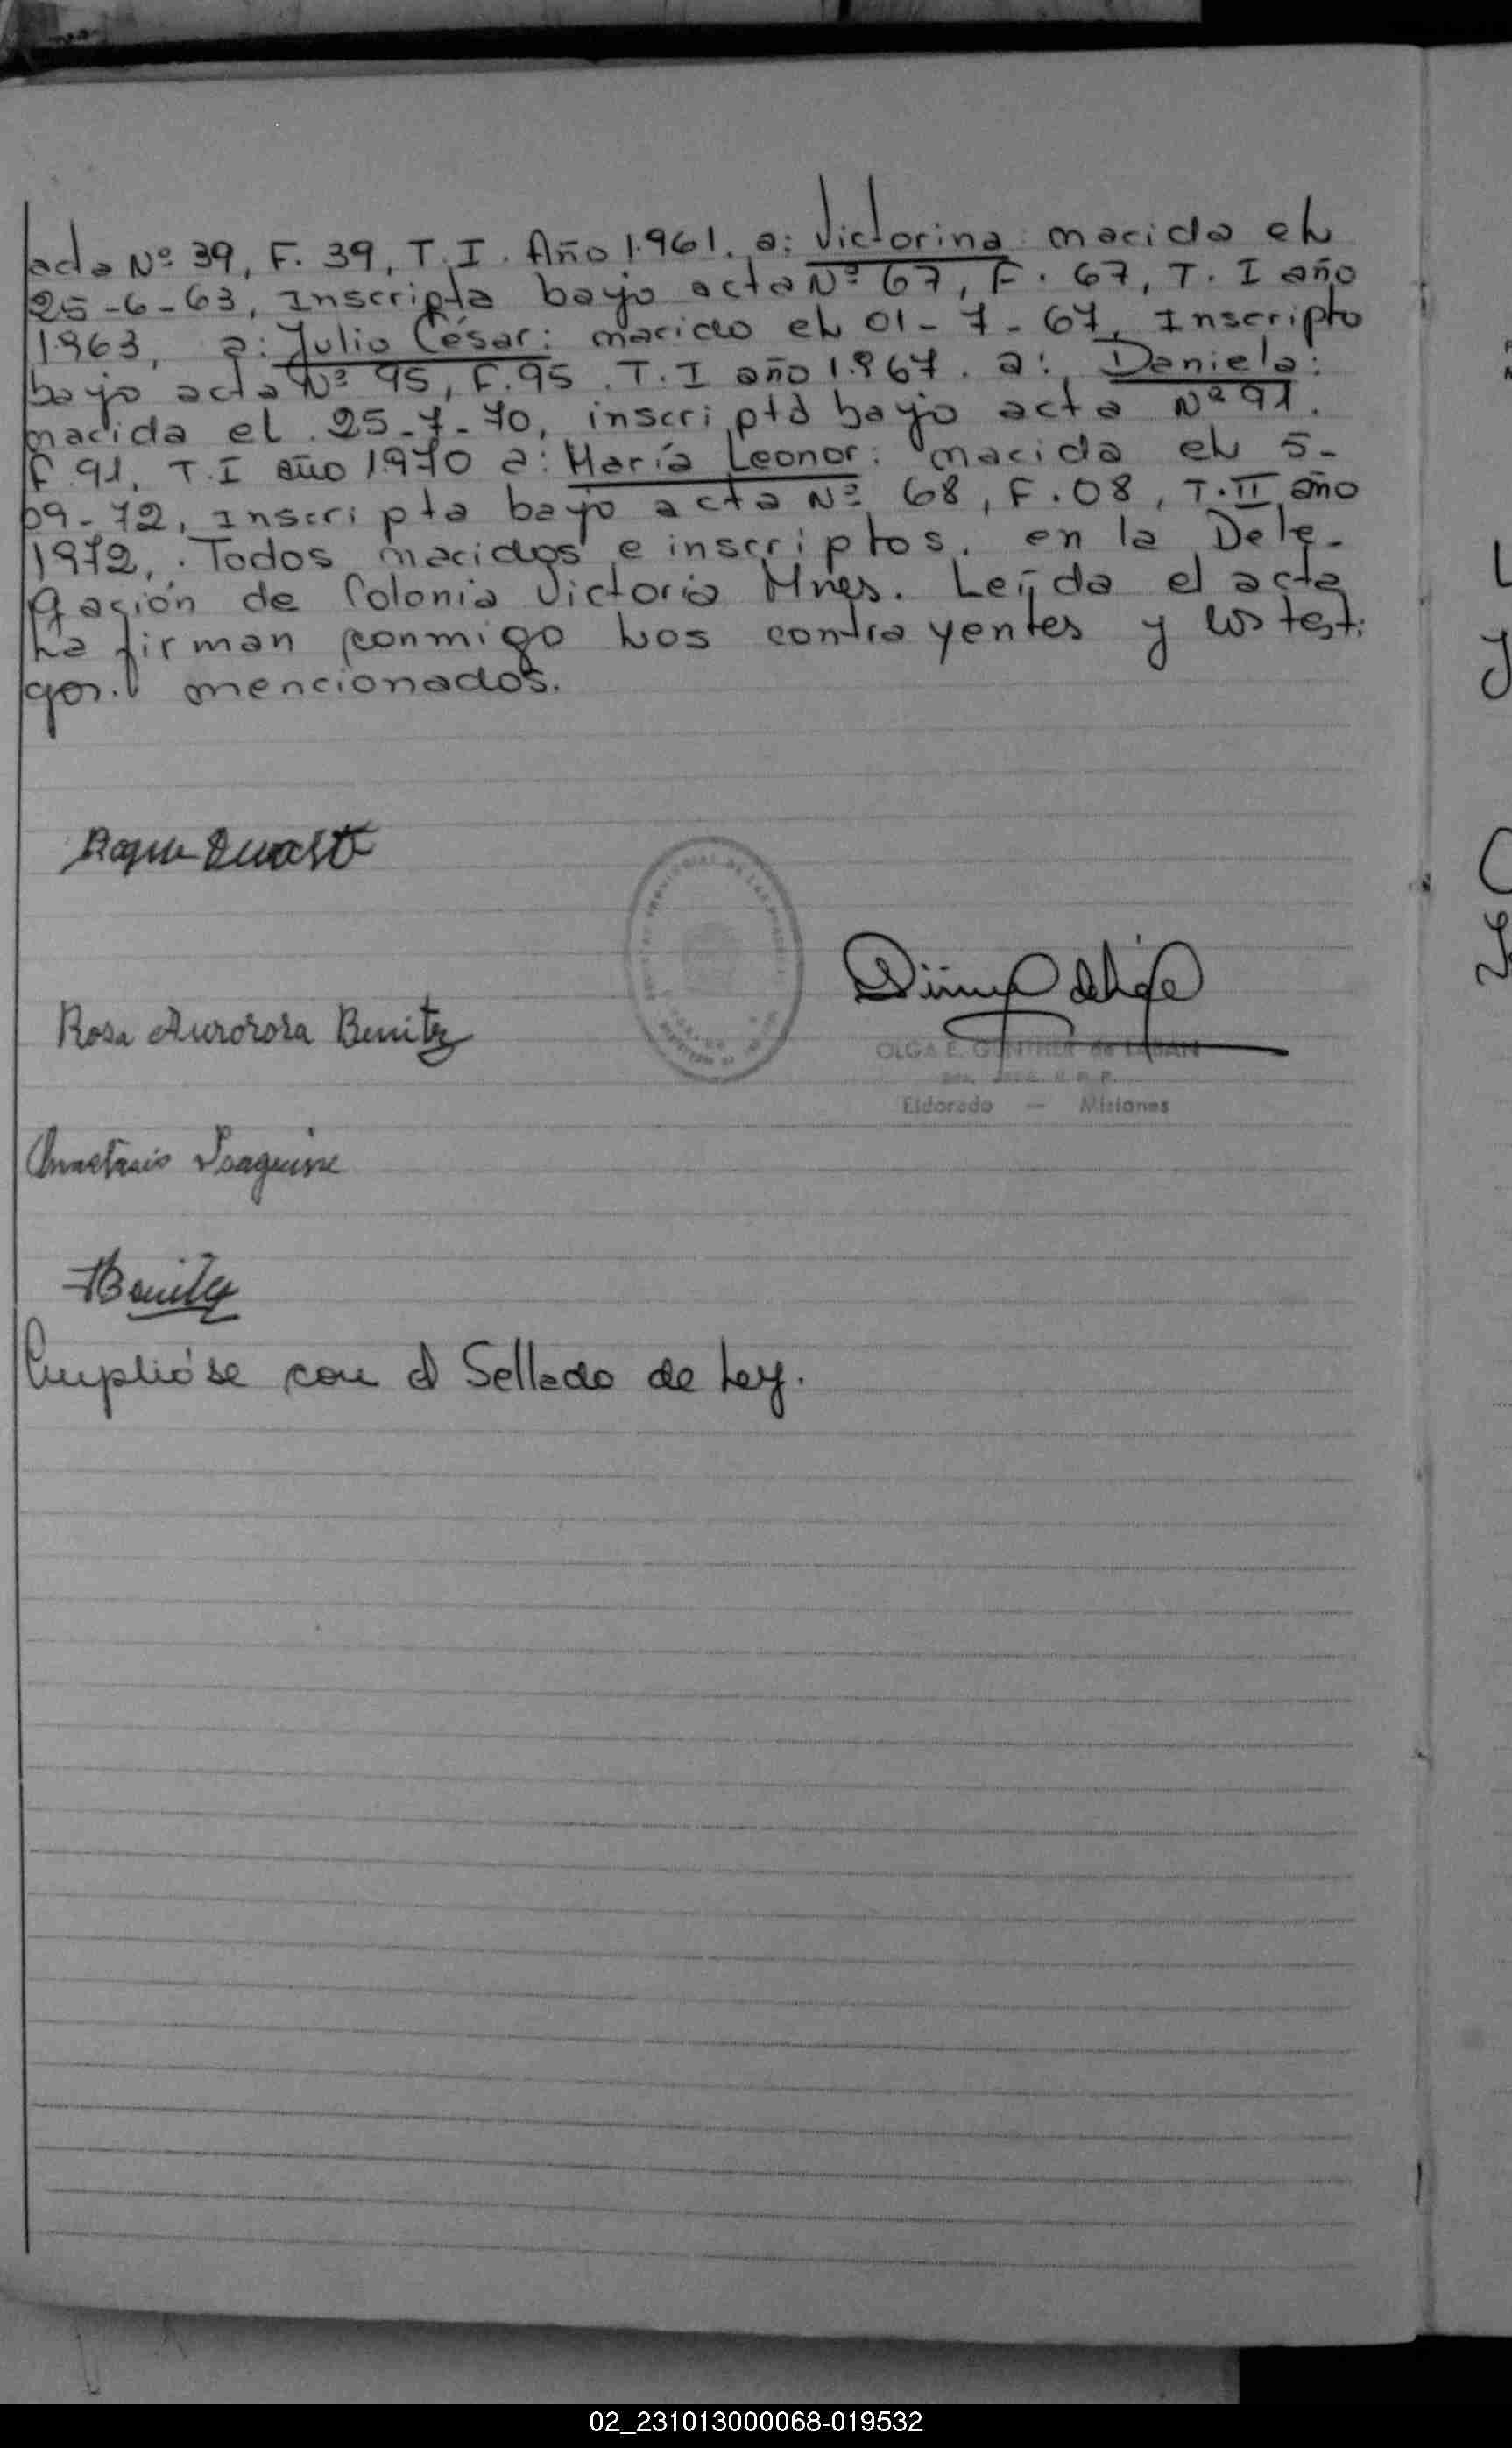 acta Nº 39, F. 39, T. I. Año 1.961. a: Victorina nacida el
25-6-63, Inscripta bajo acta Nº 67, F. 67, T. I año
1.963, a: Julio César: nacido el 01-7-67, Inscripto
bajo acta Nº 95, F. 95. T. I año 1.967. a: Daniela:
nacida el 25-7-70, inscripta bajo acta Nº 91.
F. 91, T. I año 1970 a: María Leonor: nacida el 5-
09-72, inscripta bajo acta Nº 68, F. 08, T. II año
1972,. Todos nacidos e inscriptos, en la Dele-
gación de Colonia Victoria Mnes. Leída el acta
La firman conmigo los contrayentes y los testi
gos. mencionados.
Roque Duarte
Rosa Aurorora Benitez
OLGA E. GUNTHER de LABAN
Eldorado — Misiones
Benitez
Cumplióse con el Sellado de Ley.
02_231013000068-019532